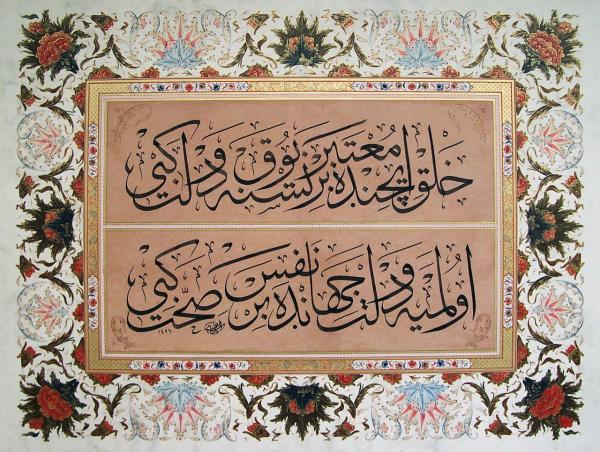 خلق ایچنده معتبر بر نسنه یوق دولت كبی
اولمیه دولت جهانده بر نفس صحّت كبی